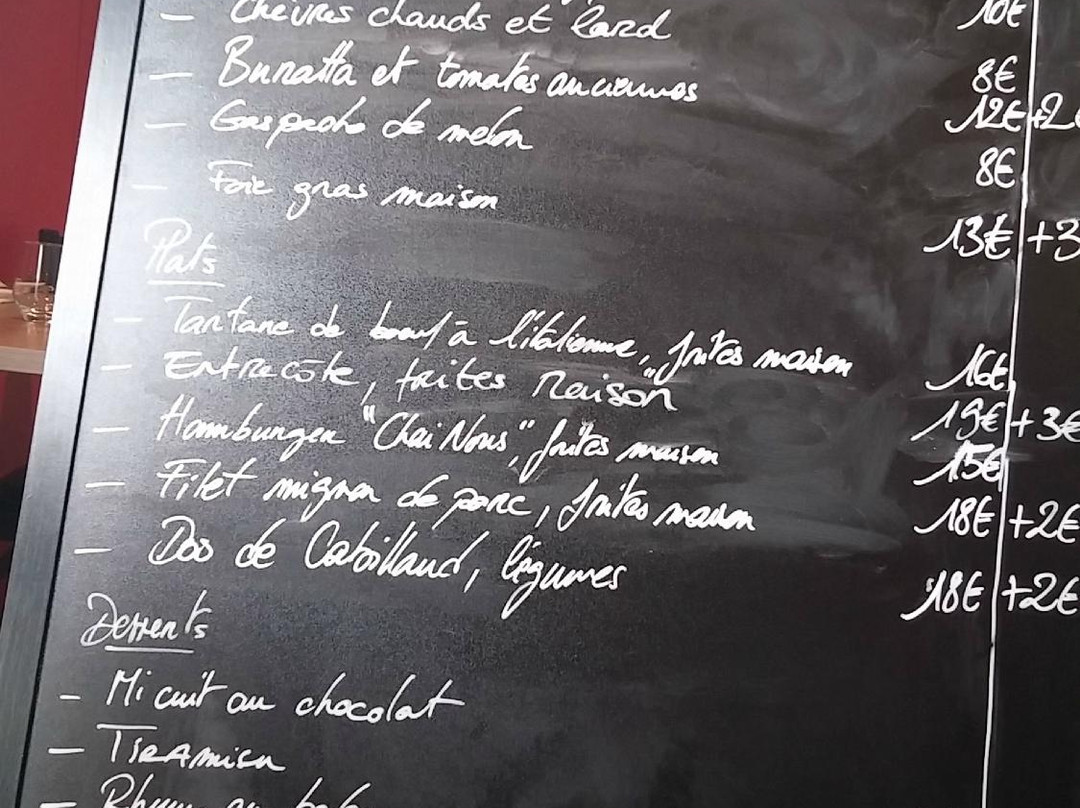 — Chèvres chauds et lard 10€
— Burratta et tomates anciennes 8€
— Gaspacho de melon 12€ +2€
— Foie gras maison 8€
Plats 13€ +3
— Tartare de bœuf à l'italienne, frites maison 16€
— Entrecôte, frites maison 19€ +3€
— Hamburger "Chai Nous", frites maison 15€
— Filet mignon de porc, frites maison 18€ +2€
— Dos de Cabillaud, légumes 18€ +2€
Desserts
— Mi cuit au chocolat
— TIRAmisu
— Rhum au baba